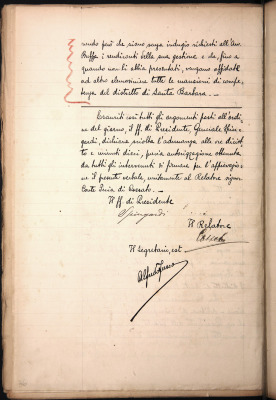 rando però che siano senza indugio richiesti all'Avv.
Ruffa i rendiconti della sua gestione e che, fino a
quando non li abbia presentati, vengano affidate
ad altro elemosiniere tutte le mansioni di compe-
tenza del distretto di Santa Barbara. _
Esauriti così tutti gli argomenti posti all'ordi-
ne del giorno, il ff. di Presidente, Generale Spin-
gardi, dichiara sciolta l'adunanza alle ore diciot-
to e minuti dieci, previa autorizzazione ottenuta
da tutti gli intervenuti di firmare per l'approvazio-
ne il presente verbale, unitamente al Relatore signor
Conte di Cossato. _
Il ff di Presidente
Spingardi
Il Relatore
Cossato
Il Segretario, est. _
Alfredo